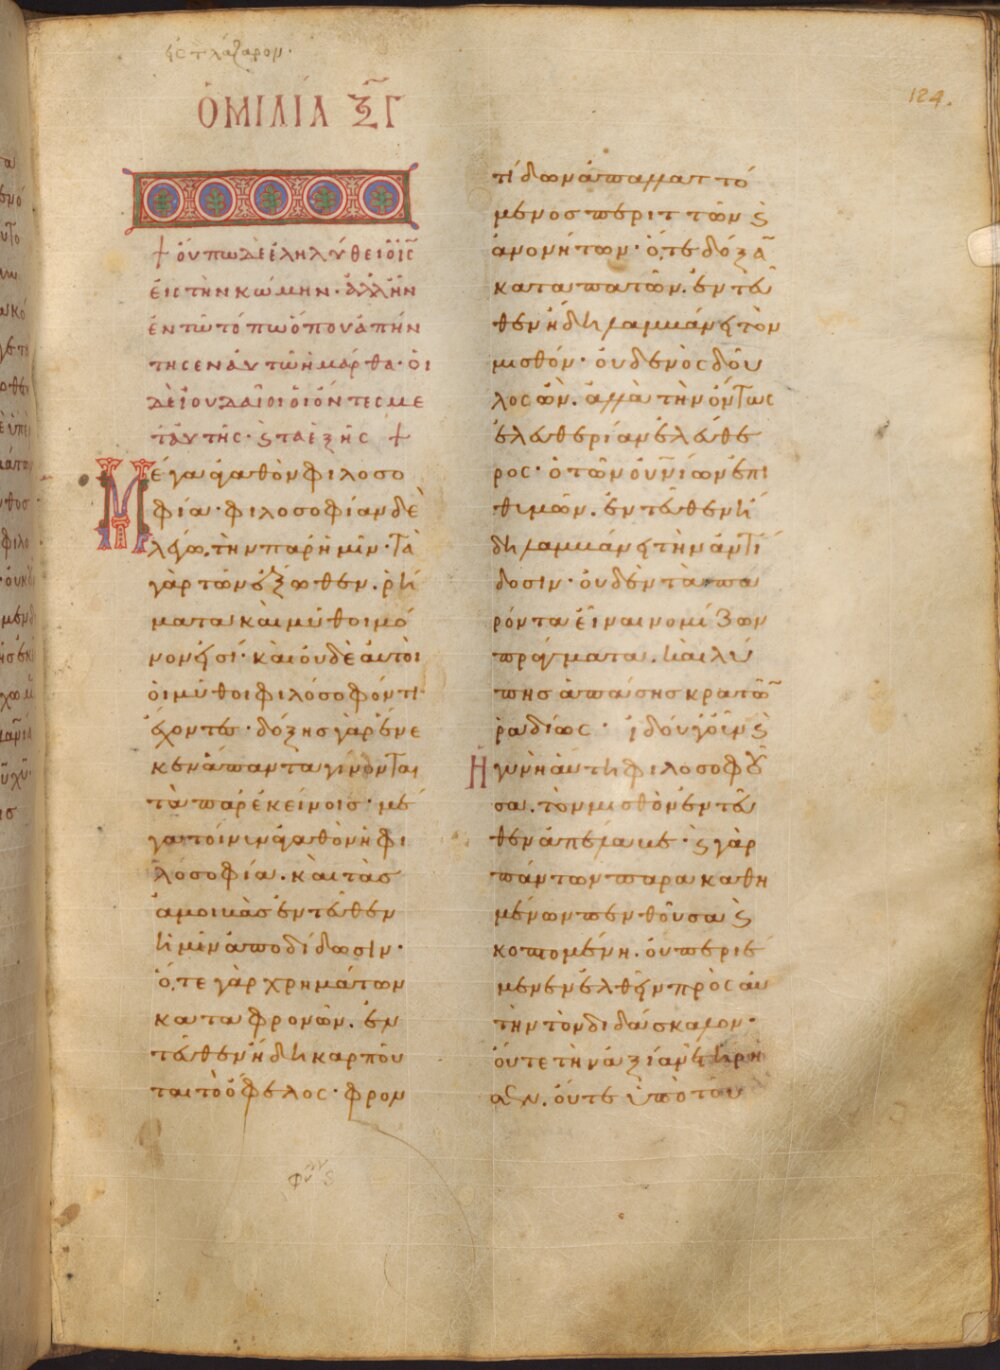 εἰς τ λάζαρον·
ὉΜΙΛΙΑ ΞΓ
124.
+ ὀύπω δὲ ἐληλύθει ὁ ἰς
ἐις τὴν κώμην· ἀλλ῏ην
ἐν τῶ τόπω ὅπου ἀπήν
τησεν ἀυτῶ ἡ μάρθα· ὁι
δὲ ἰουδαῖοι ὁι ὄντες με
τ᾽ἀυτῆς· ϗ τα ἑξῆς +
Μέγα ἀγαθὸν φιλοσο
φία· φιλοσοφίαν δὲ
λέγω, τὴν παρ᾽ἡμῖν· τὰ
γὰρ τῶν ἔξωθεν, ῥή
ματα καὶ μῦθοι μό
νον εἰσί· καὶ ὀυδὲ ἀυτοὶ
ὁι μῦθοι φιλόσοφόν τι
ἔχοντες· δόξης γὰρ ἕνε
κεν ἅπαντα γίνονται
τὰ παρ᾽ἐκείνοις· μέ
γα τοίνυν ἀγαθὸν ἡ φι
λοσοφία. καὶ τὰς
ἀμοιβὰς ἐντεῦθεν
ἡμῖν ἀποδίδωσιν·
ὅ,τε γὰρ χρημάτων
καταφρονῶν, ἐν
τεῦθεν ἤδη καρποῦ
ται τὸ ὄφελος· φρον
τίδων ἀπαλλαττό
μενος περιττῶν ϗ
ἀνονήτων· ὅ,τε δόξαν
καταπατῶν, ἐντεῦ
θεν ἤδη λαμβάνει τὸν
μισθόν· ὀυδενὸς δοῦ
λος ὤν. ἀλλὰ τὴν ὄντως
ἐλευθερίαν ἐλεύθε
ρος· ὁ τῶν ὀυνίων ἐπι
θυμῶν, ἐντεῦθεν ἤ
δη λαμβάνει τὴν ἀντί
δοσιν· ὀυδὲν τὰ πα
ρόντα ἐῖναι νομίζων
πράγματα. καὶ λύ
πης ἁπάσης κρατῶν
ῥαδίως· ἰδοὺ γοῦν ϗ
Ἡ γυνὴ ἀύτη φιλοσοφοῦ
σα, τὸν μισθὸν ἐντεῦ
θεν ἀπέλαβε· ϗ γὰρ
πάντων παρακαθη
μένων πενθοῦσα ϗ
κοπτομένη. ὀυ περιέ
μενεν ἐλθεῖν πρὸς ἀυ
τὴν τὸν διδάσκαλον·
ὄυτε τὴν ἀξίαν ἐτήρη
σεν. ὄυτε ὑπὸ τοῦ